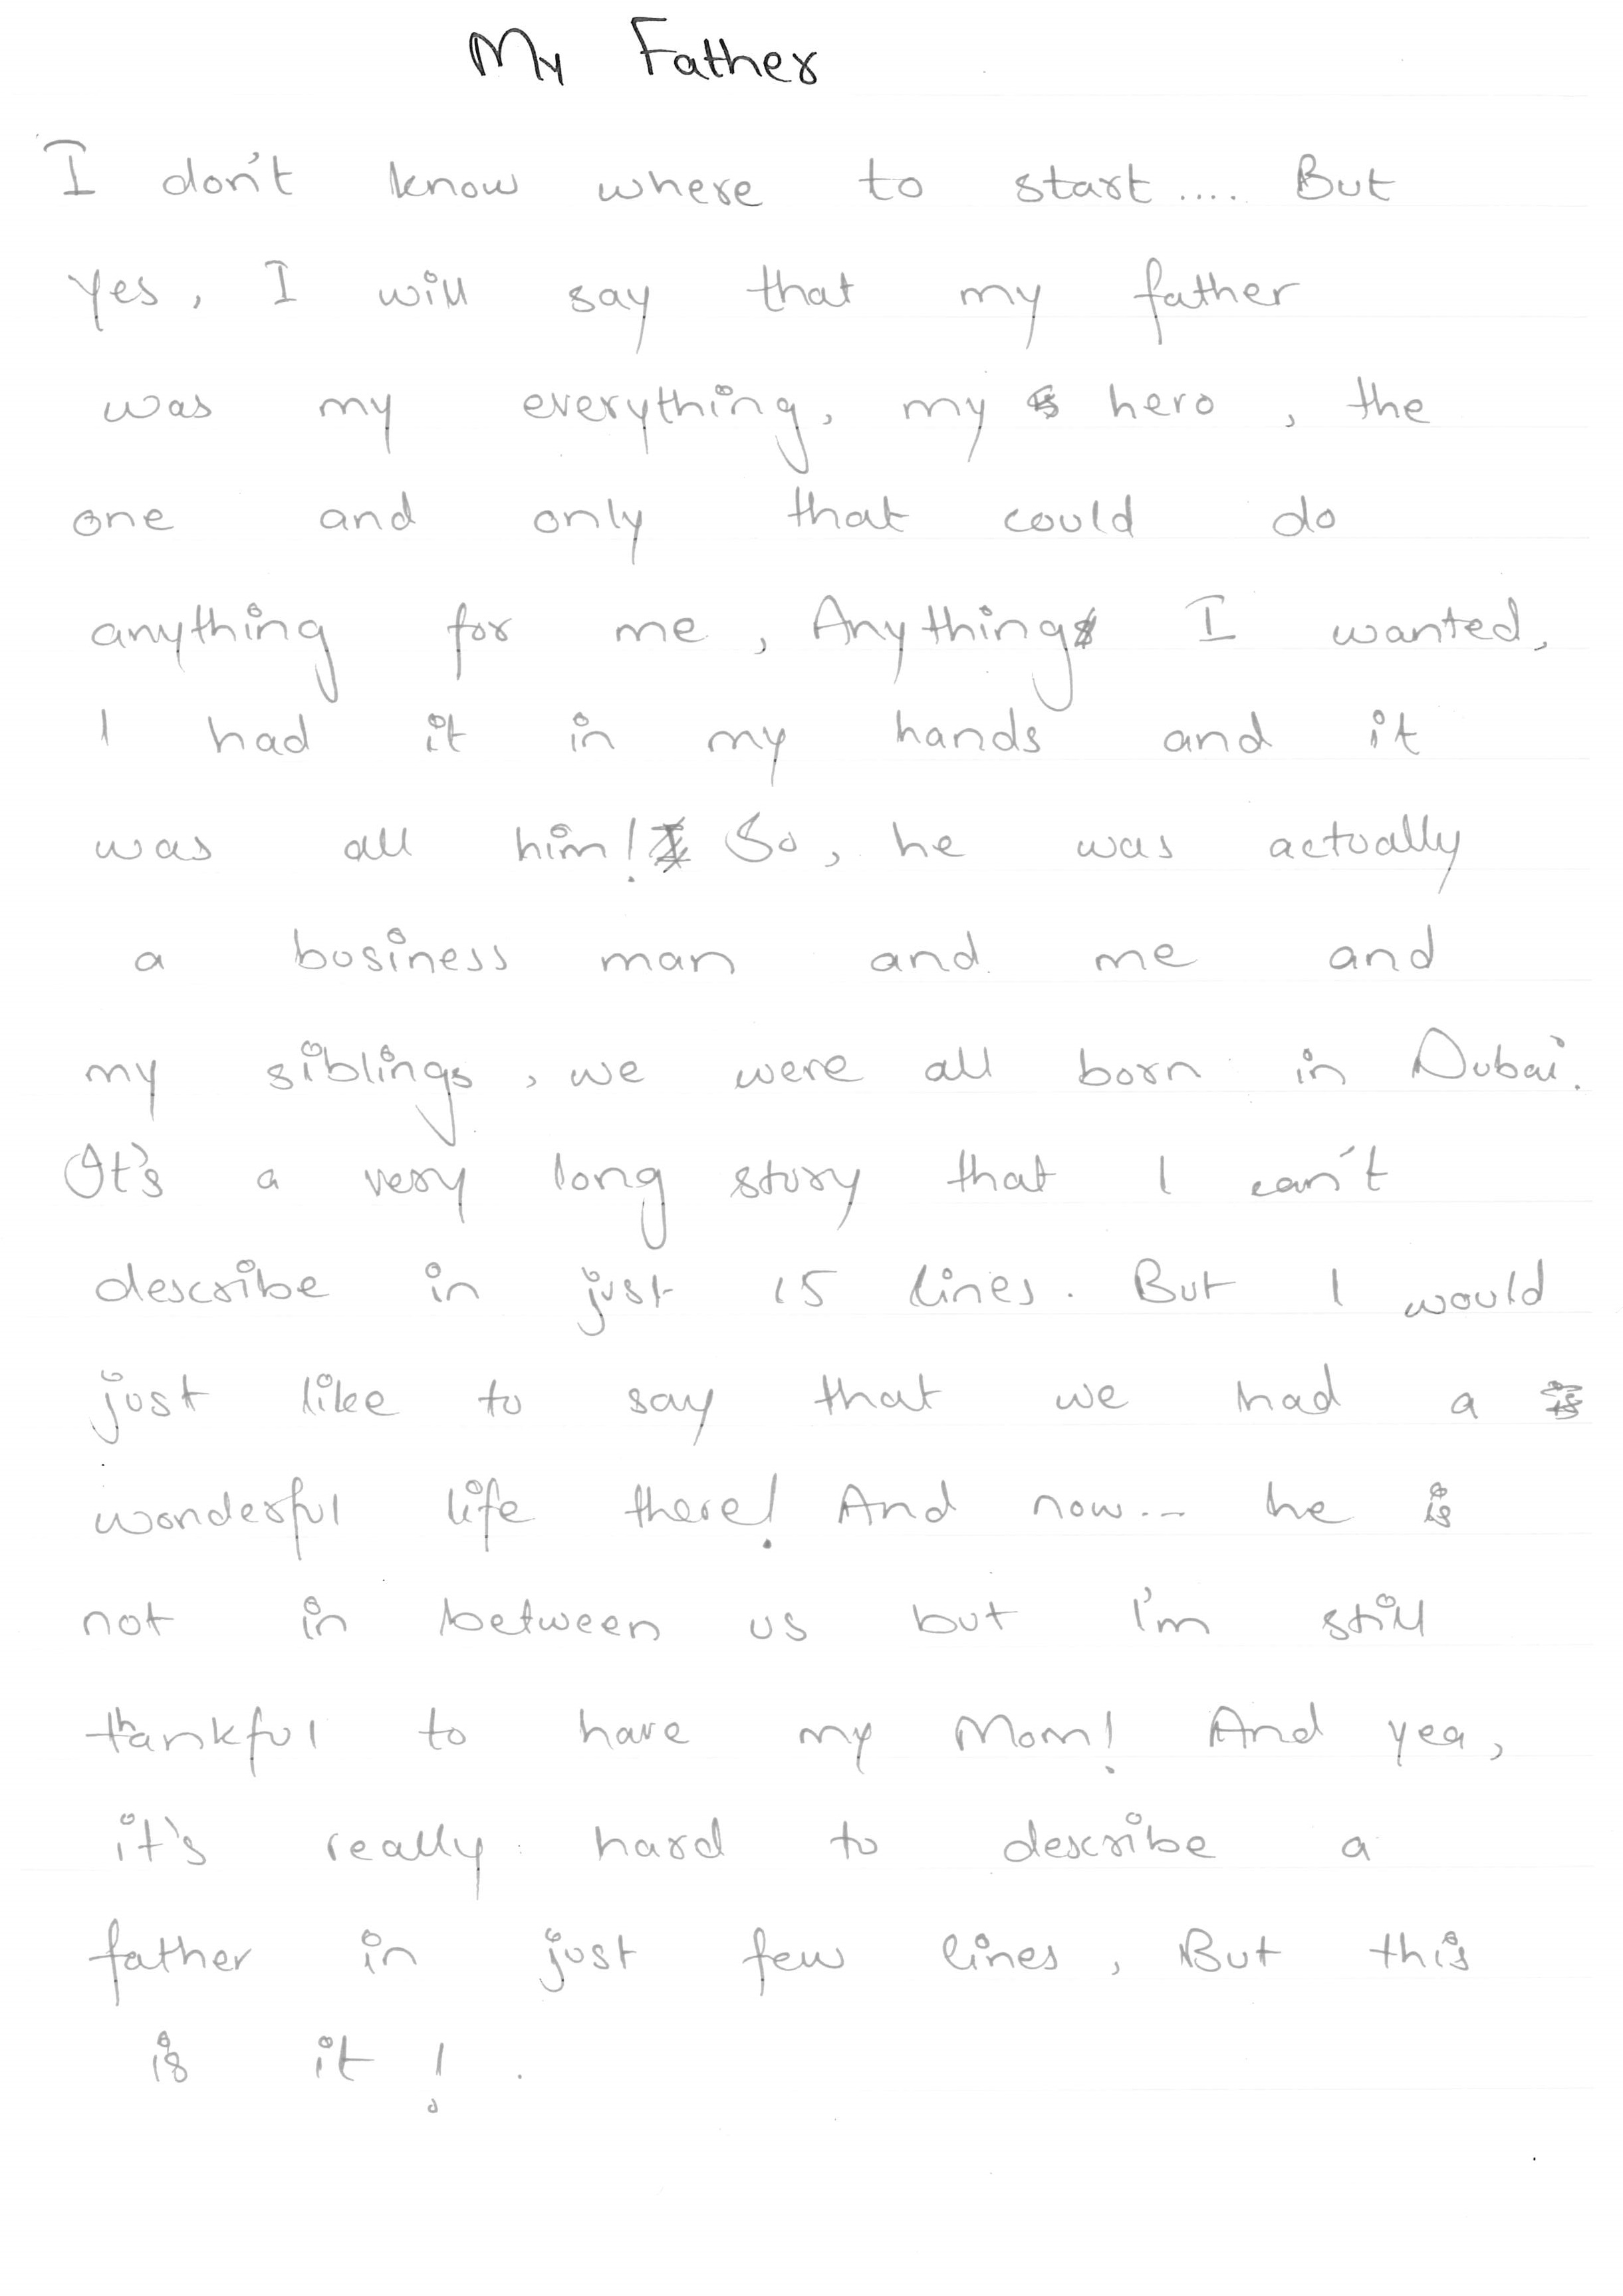 My Father
I don't know where to start.... But
Yes, I will say that my father
was my everything, my hero, the
one and only that could do
anything for me, Anything I wanted,
I had it in my hands and it
was all him! So, he was actually
a business man and me and
my siblings, we were all born in Dubai.
It's a very long story that I can't
describe in just 15 lines. But I would
just like to say that we had a
wonderful life there! And now... he is
not in between us but I'm still
thankful to have my Mom! And yea,
it's really hard to describe a
father in just few lines, But this
is it!